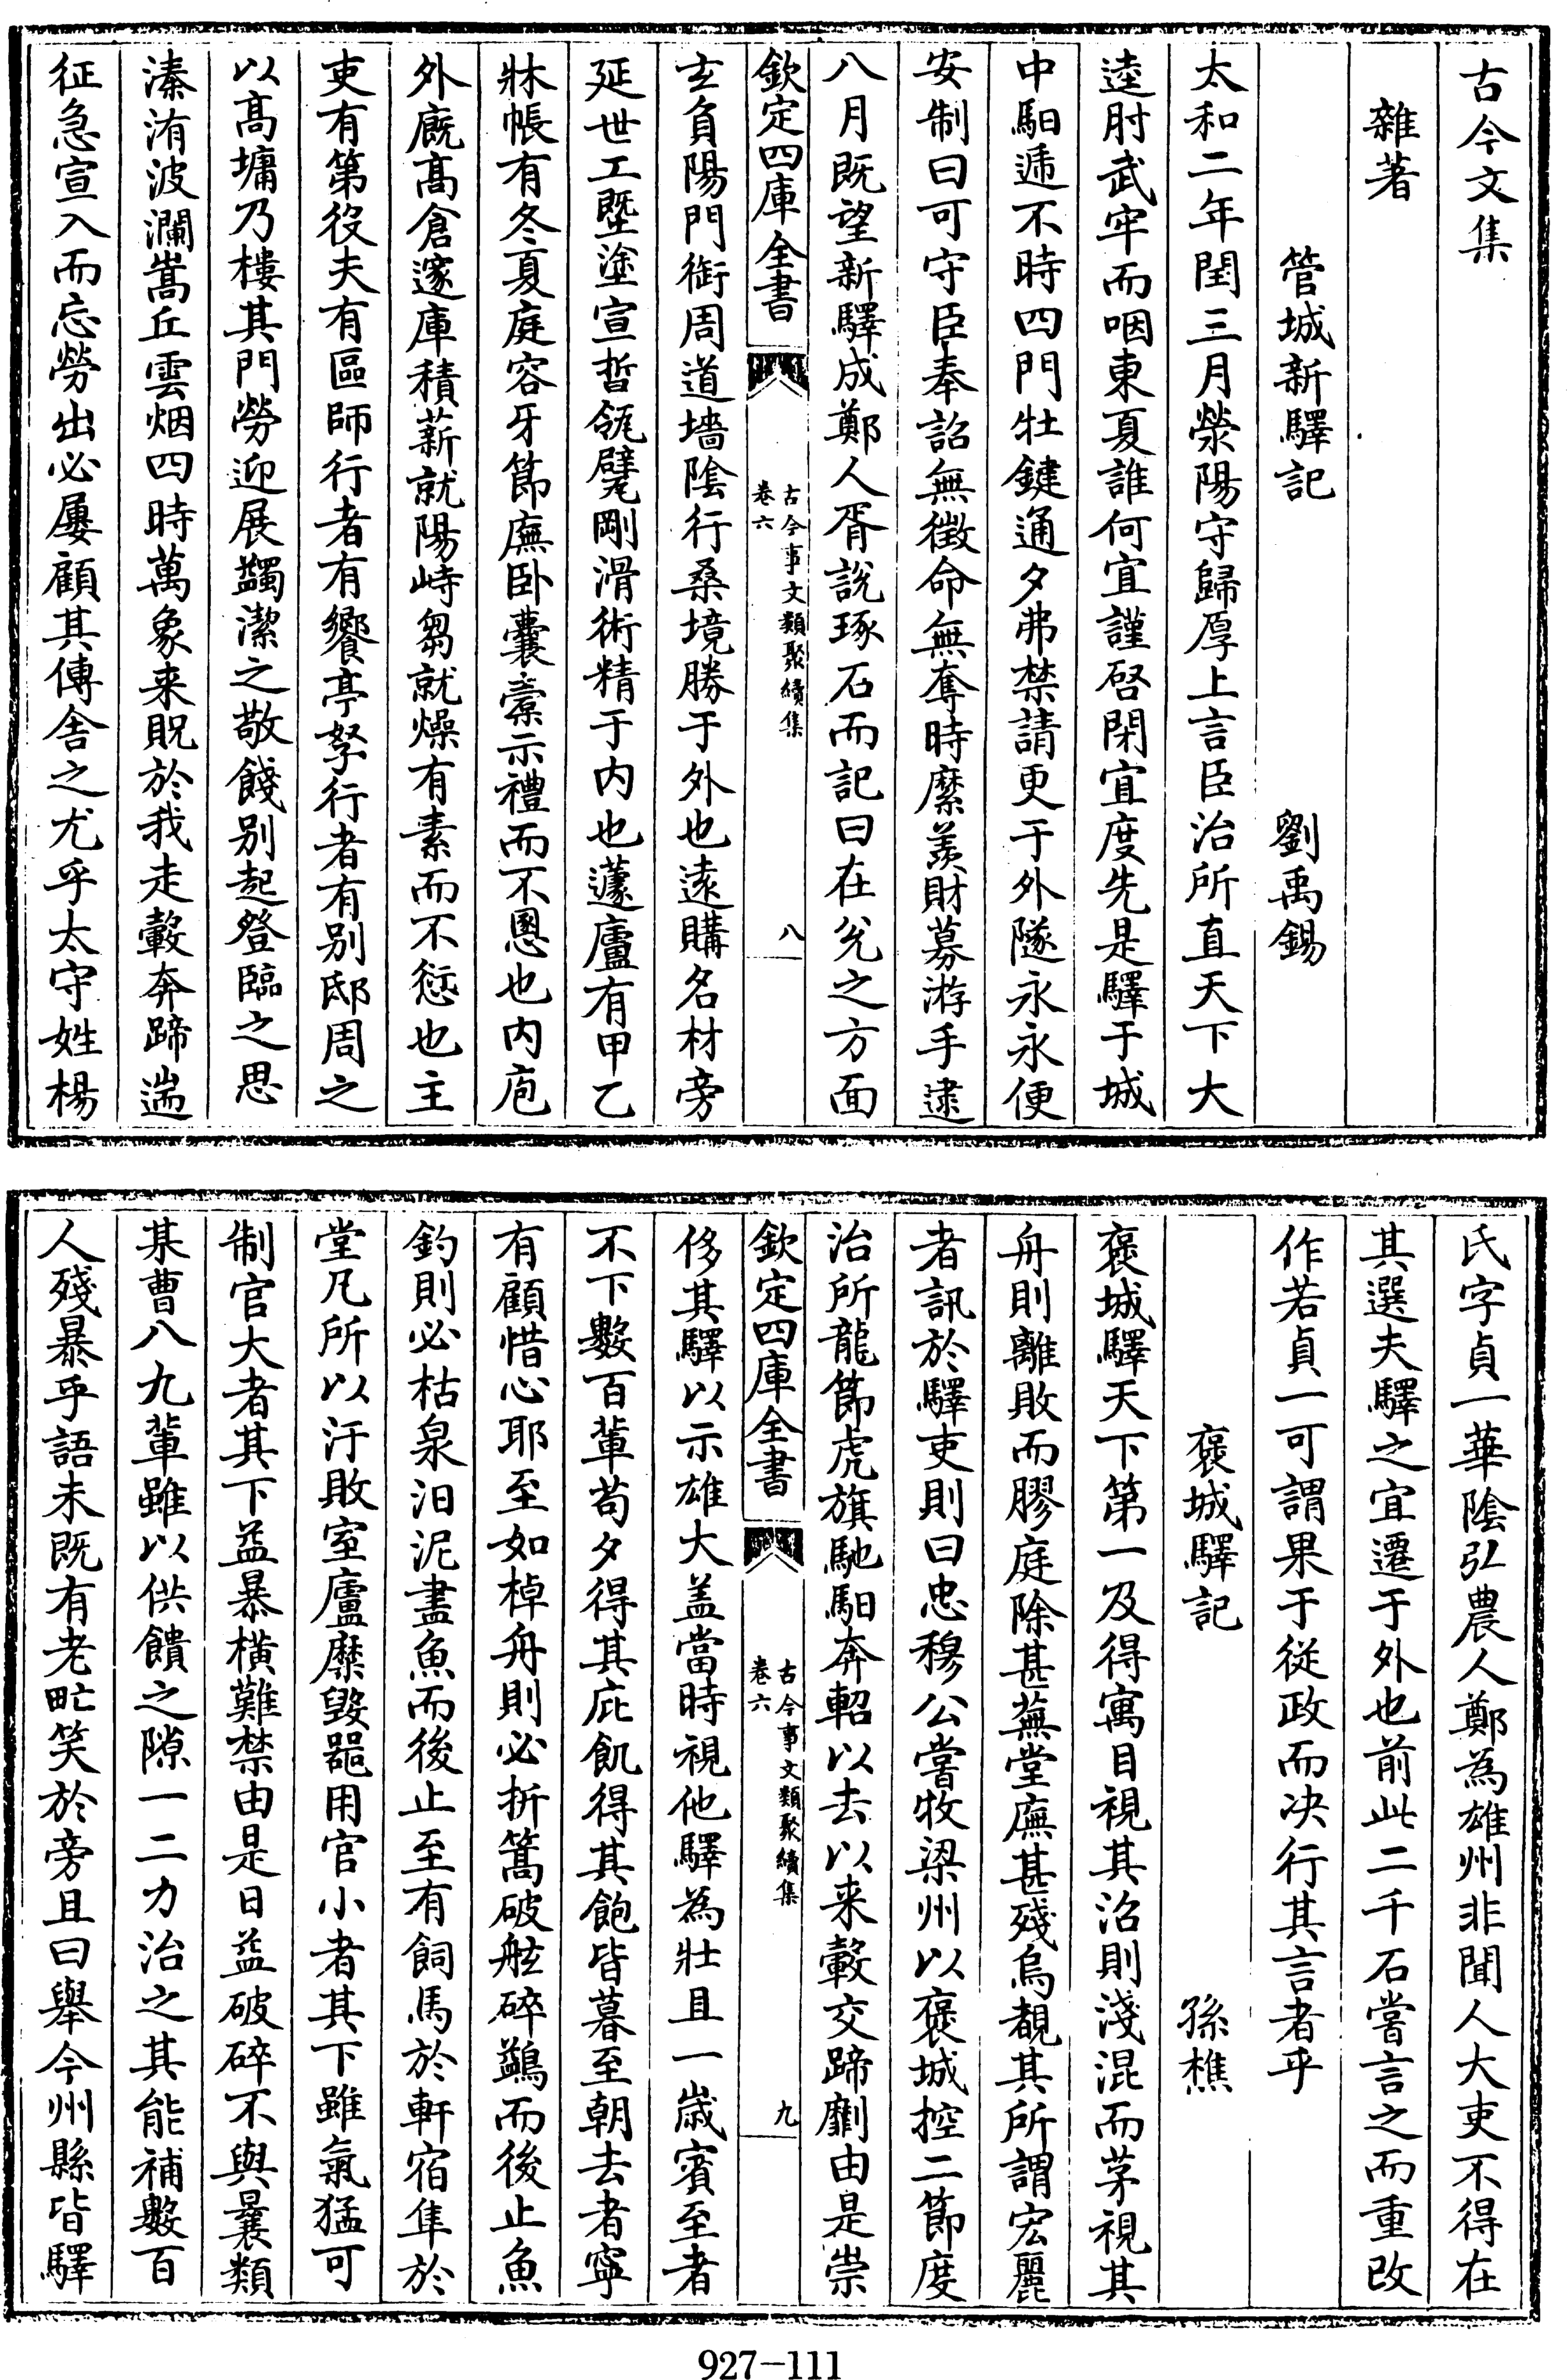 古今文集
雜著
管城新驛記　劉禹錫
太和二年閏三月滎陽守歸厚上言臣治所直天下大
逵肘武牢而咽東夏誰何宜謹啓閉宜度先是驛于城
中馹遞不時四門牡鍵通夕弗禁請更于外隧永永便
安制曰可守臣奉詔無徵命無奪時縻羨財募游手逮
八月既望新驛成鄭人胥說琢石而記曰在兊之方面
欽定四庫全書　古今事文類聚續集　卷六　八
玄負陽門衘周道墻隂行桑境勝于外也逺購名材旁
延世工塈塗宣晳瓴甓剛滑術精于内也蘧廬有甲乙
牀帳有冬夏庭容牙節廡卧囊橐示禮而不慁也内庖
外廐髙倉邃庫積薪就陽峙芻就燥有素而不愆也主
吏有第役夫有區師行者有饗亭孥行者有别邸周之
以髙墉乃樓其門勞迎展蠲潔之敬餞别起登臨之思
溱洧波瀾嵩丘雲烟四時萬象来貺於我走轂奔蹄遄
征急宣入而忘勞出必屢顧其傳舍之尤乎太守姓楊
氏字貞一華隂弘農人鄭為雄州非聞人大吏不得在
其選夫驛之宜遷于外也前此二千石嘗言之而重改
作若貞一可謂果于從政而决行其言者乎
褒城驛記　孫樵
褒城驛天下第一及得寓目視其沼則淺混而茅視其
舟則離敗而膠庭除甚蕪堂廡甚殘烏覩其所謂宏麗
者訊於驛吏則曰忠穆公嘗牧梁州以褒城控二節度
治所龍節虎旗馳馹奔軺以去以来轂交蹄劘由是崇
欽定四庫全書　古今事文類聚續集　卷六　九
侈其驛以示雄大盖當時視他驛為壯且一嵗賓至者
不下數百輩茍夕得其庇飢得其飽皆暮至朝去者寧
有顧惜心耶至如棹舟則必折篙破舷碎鷁而後止魚
釣則必枯泉汩泥盡魚而後止至有飼馬於軒宿隼於
堂凡所以汙敗室廬糜毁噐用官小者其下雖氣猛可
制官大者其下益暴横難禁由是日益破碎不與曩類
某曹八九輩雖以供饋之隙一二力治之其能補數百
人殘暴乎語未既有老甿笑於旁且曰舉今州縣皆驛
927-111